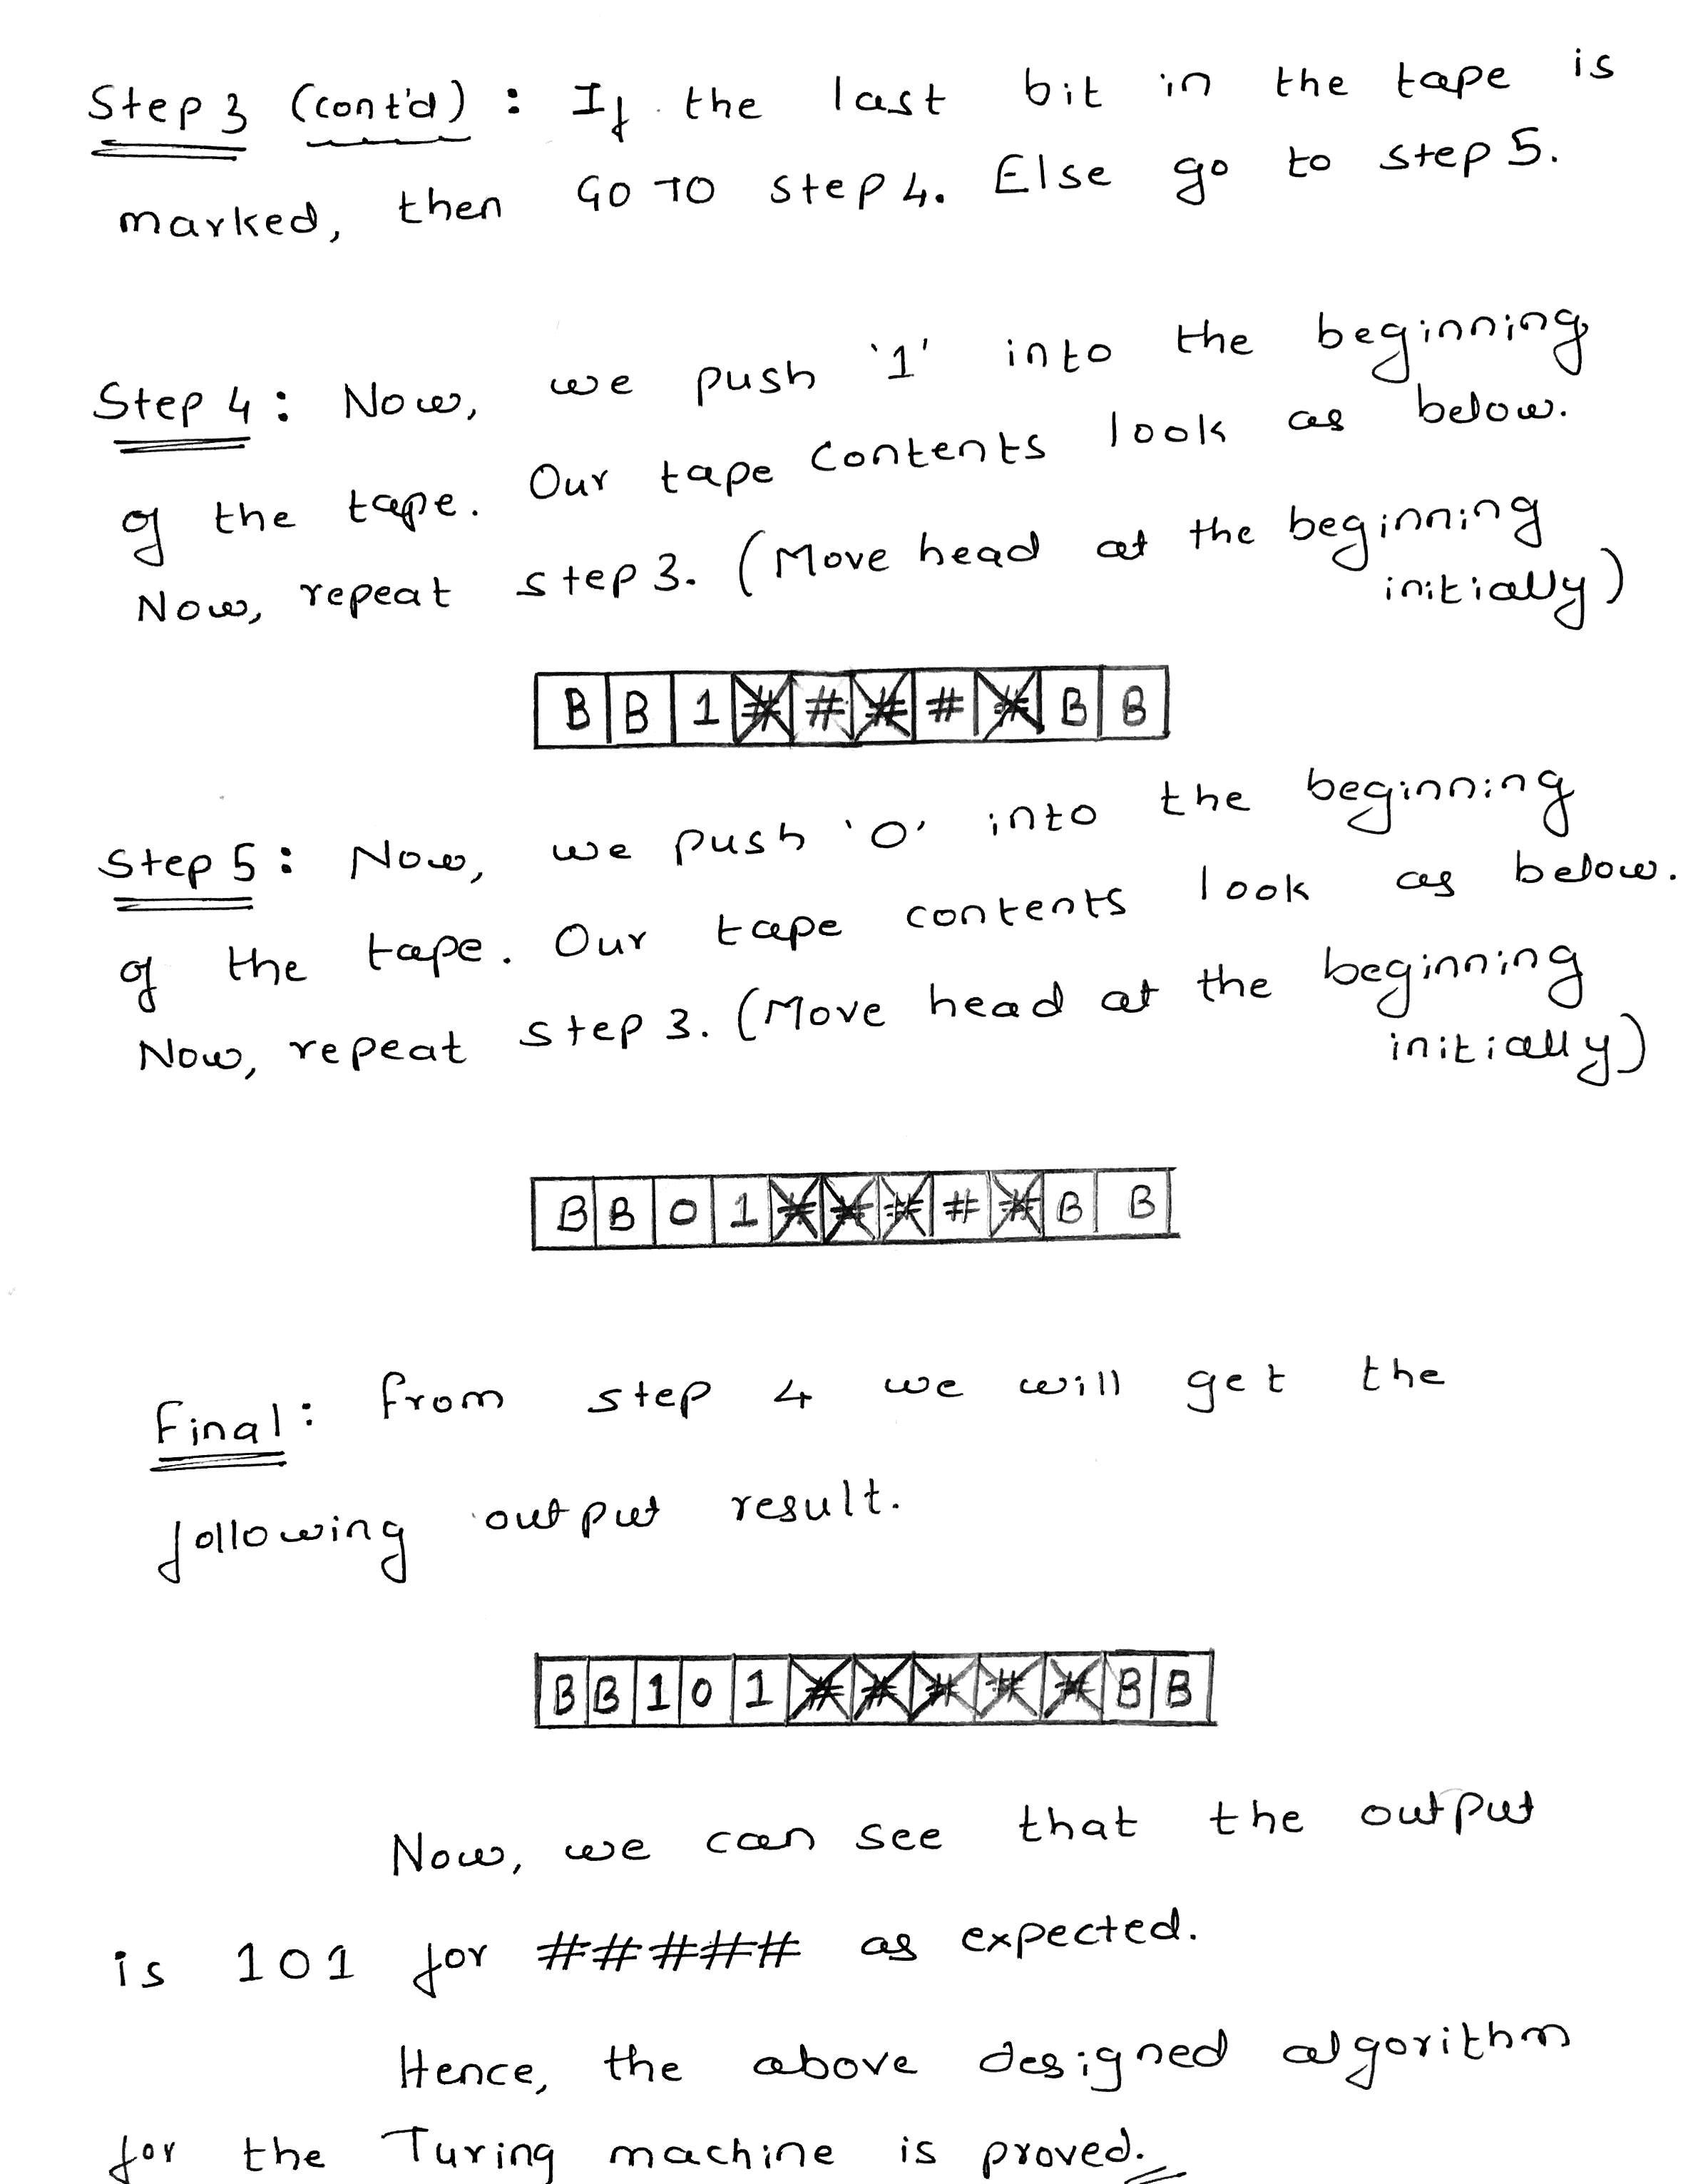 Step 3 (cont'd) : If the last bit in the tape is
marked, then GO TO step 4. Else go to step 5.
Step 4 : Now, we push '1' into the beginning
of the tape. Our tape contents look as below.
Now, repeat step 3. (Move head at the beginning
initially)
B B 1 # # # # # B B
Step 5 : Now, we push '0' into the beginning
of the tape. Our tape contents look as below.
Now, repeat step 3. (Move head at the beginning
initially)
B B 0 1 # # # # # B B
Final : from step 4 we will get the
following output result.
B B 1 0 1 # # # # # B B
Now, we can see that the output
is 101 for ##### as expected.
Hence, the above designed algorithm
for the Turing machine is proved.